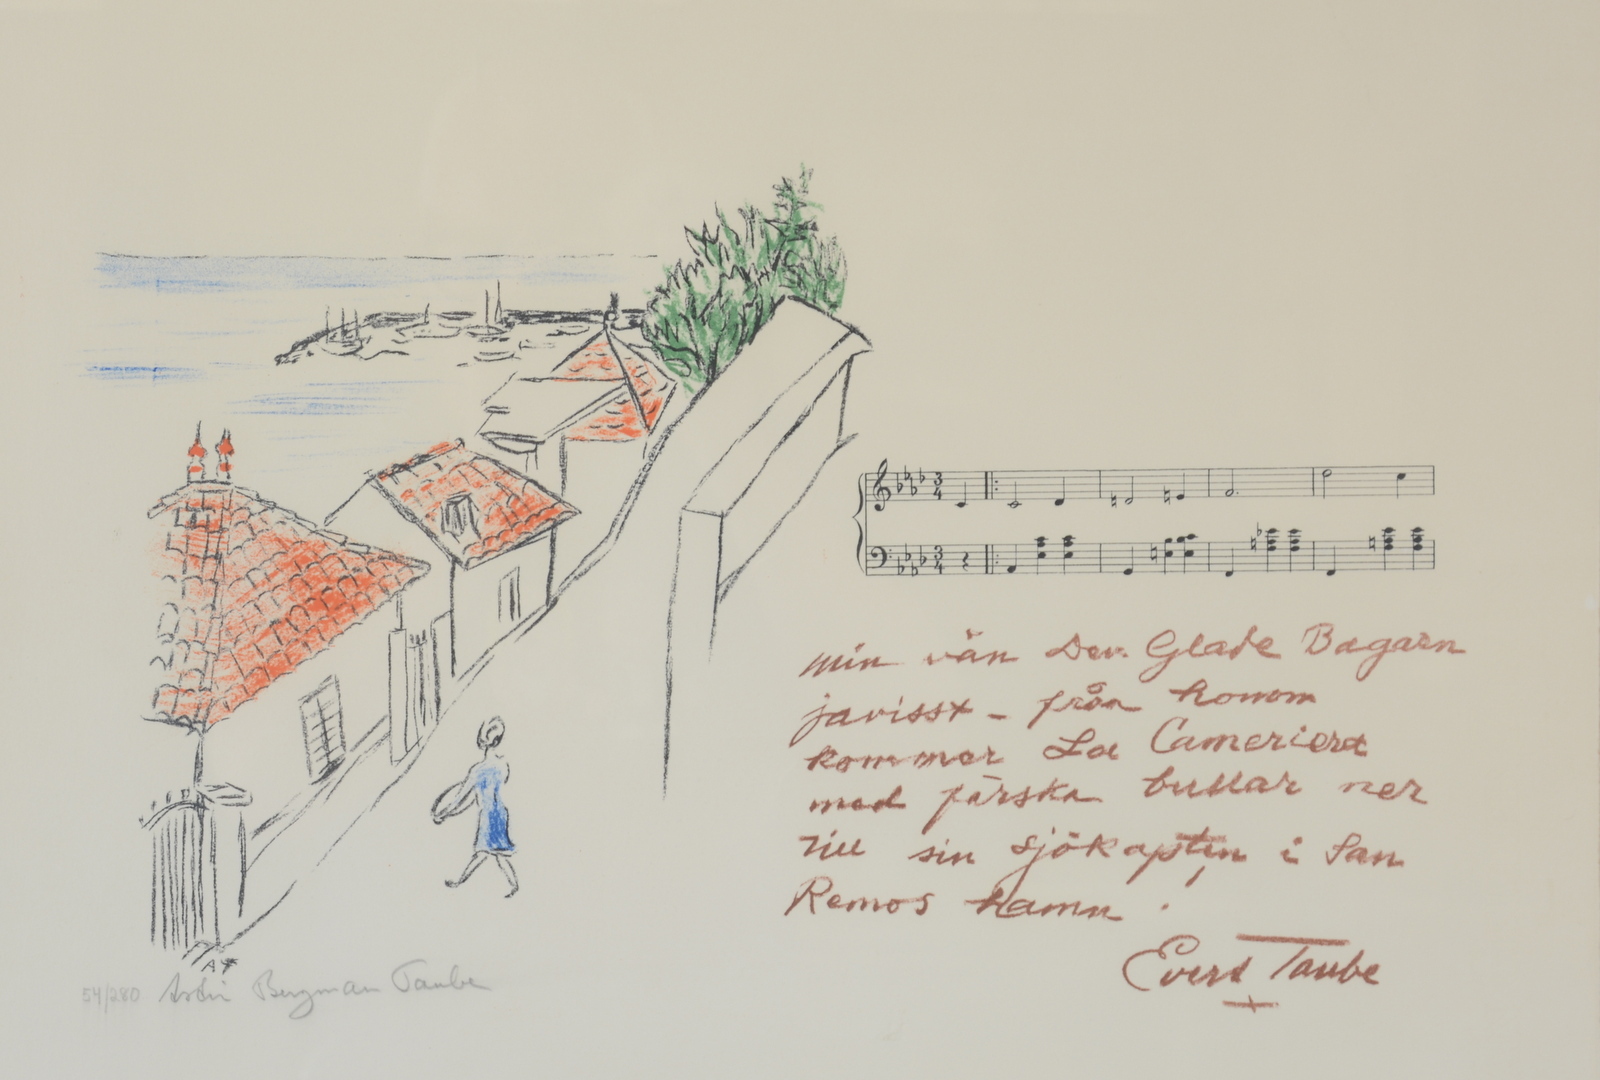 min vän Den Glade Bagarn
javisst - från honom
kommer La Cameriera
med färska bullar ner
till sin sjökapten i San
Remos hamn!
Evert Taube
AT
54/280 Astri Bergman Taube